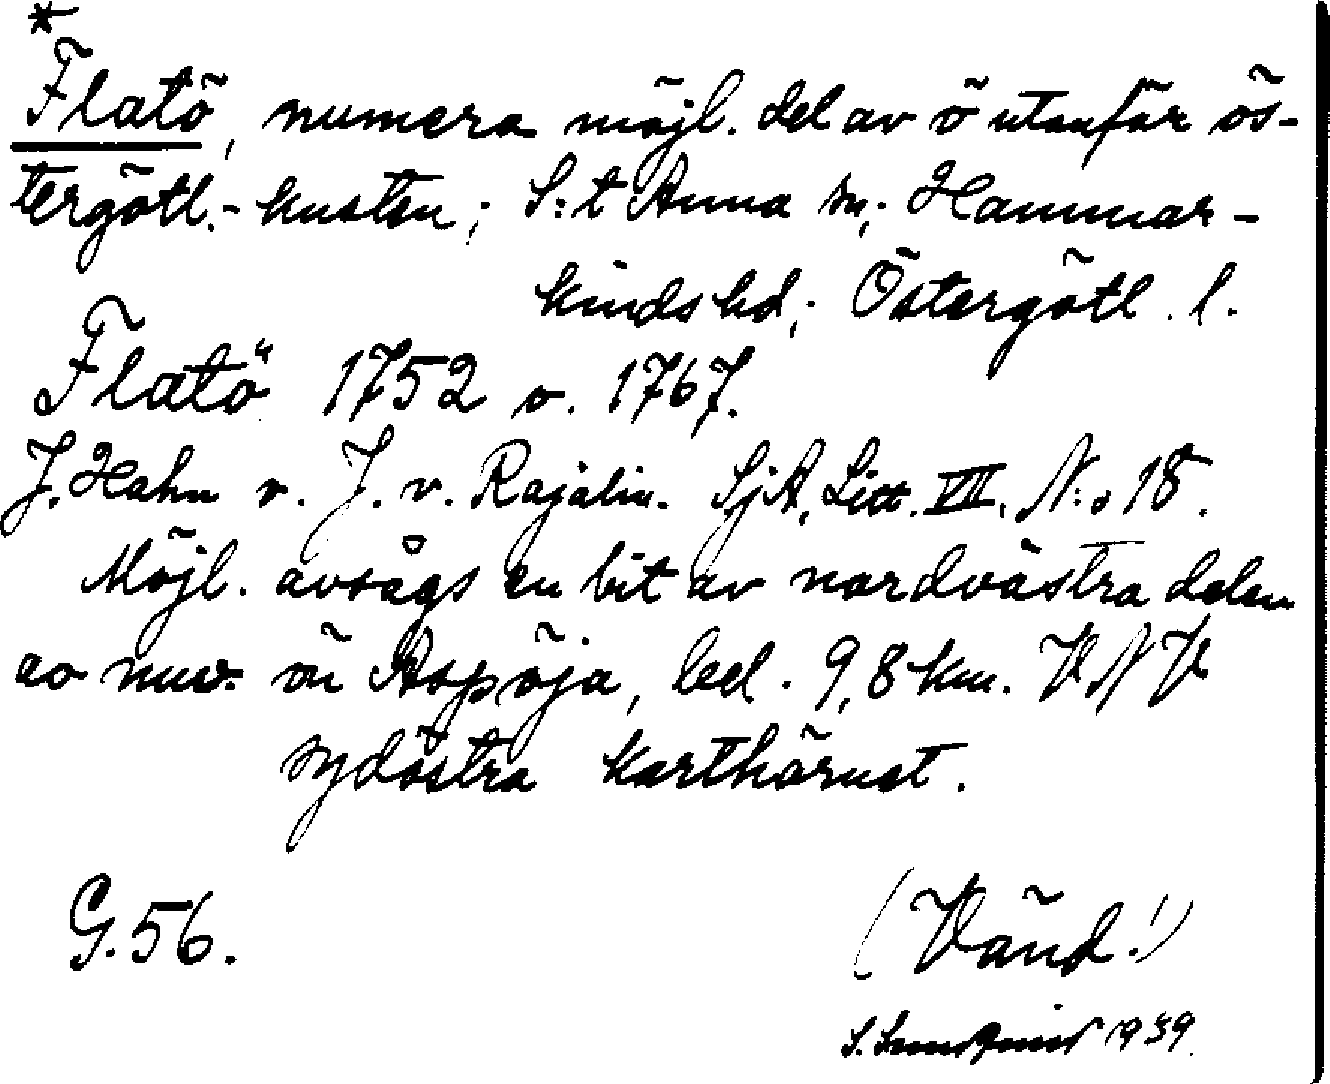 *
Flatö, numera möjl. del av ö utanför ös-
tergötl.-kusten; S:t Anna sn; Hammar-
kinds hd; Östergötl. l.
Flatö 1752 o. 1767.
J. Hahn o. J. v. Rajalin. SjA, Litt. VII. N:o 18.
Möjl. avsågs en bit av nordvästra delen
av nuv. ön Aspöja, bel. 9,8 km. VNV
sydöstra karthörnet.
G. 56.
(Vänd!)
S. 1939